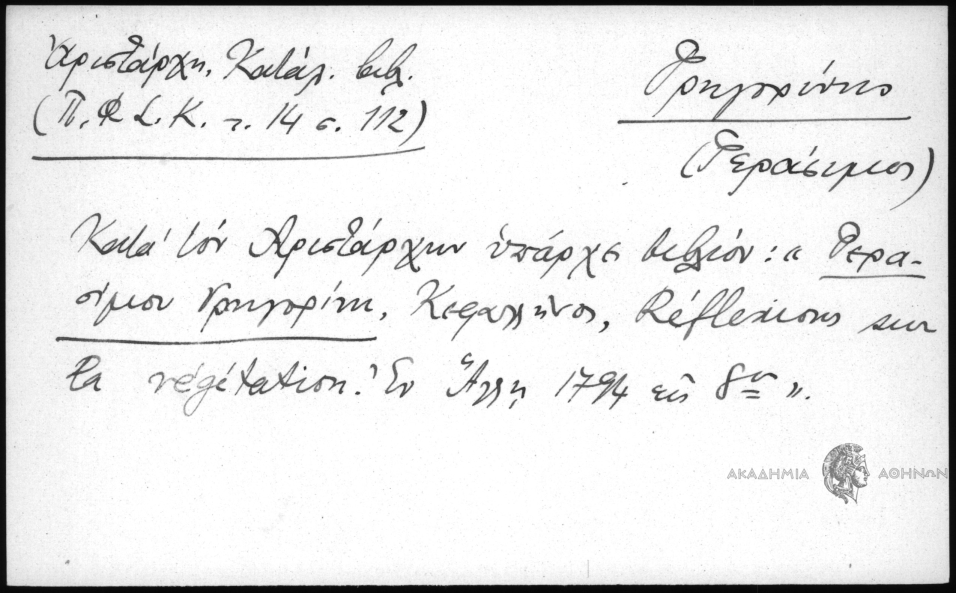 Ἀριστάρχη, Κατάλ. βιβλ.
(Π.Φ.Σ.Κ. τ. 14 σ. 112)
Γρηγορίνης
(Γεράσιμος)
Κατά τόν Ἀριστάρχην ὑπάρχει βιβλίον: « Γερα-
σίμου Γρηγορίνη, Κεφαλλῆνος, Réflexions sur
la végétation. Ἐν 1794 εἰς 8ον ».
ΑΚΑΔΗΜΙΑ ΑΘΗΝΩΝ